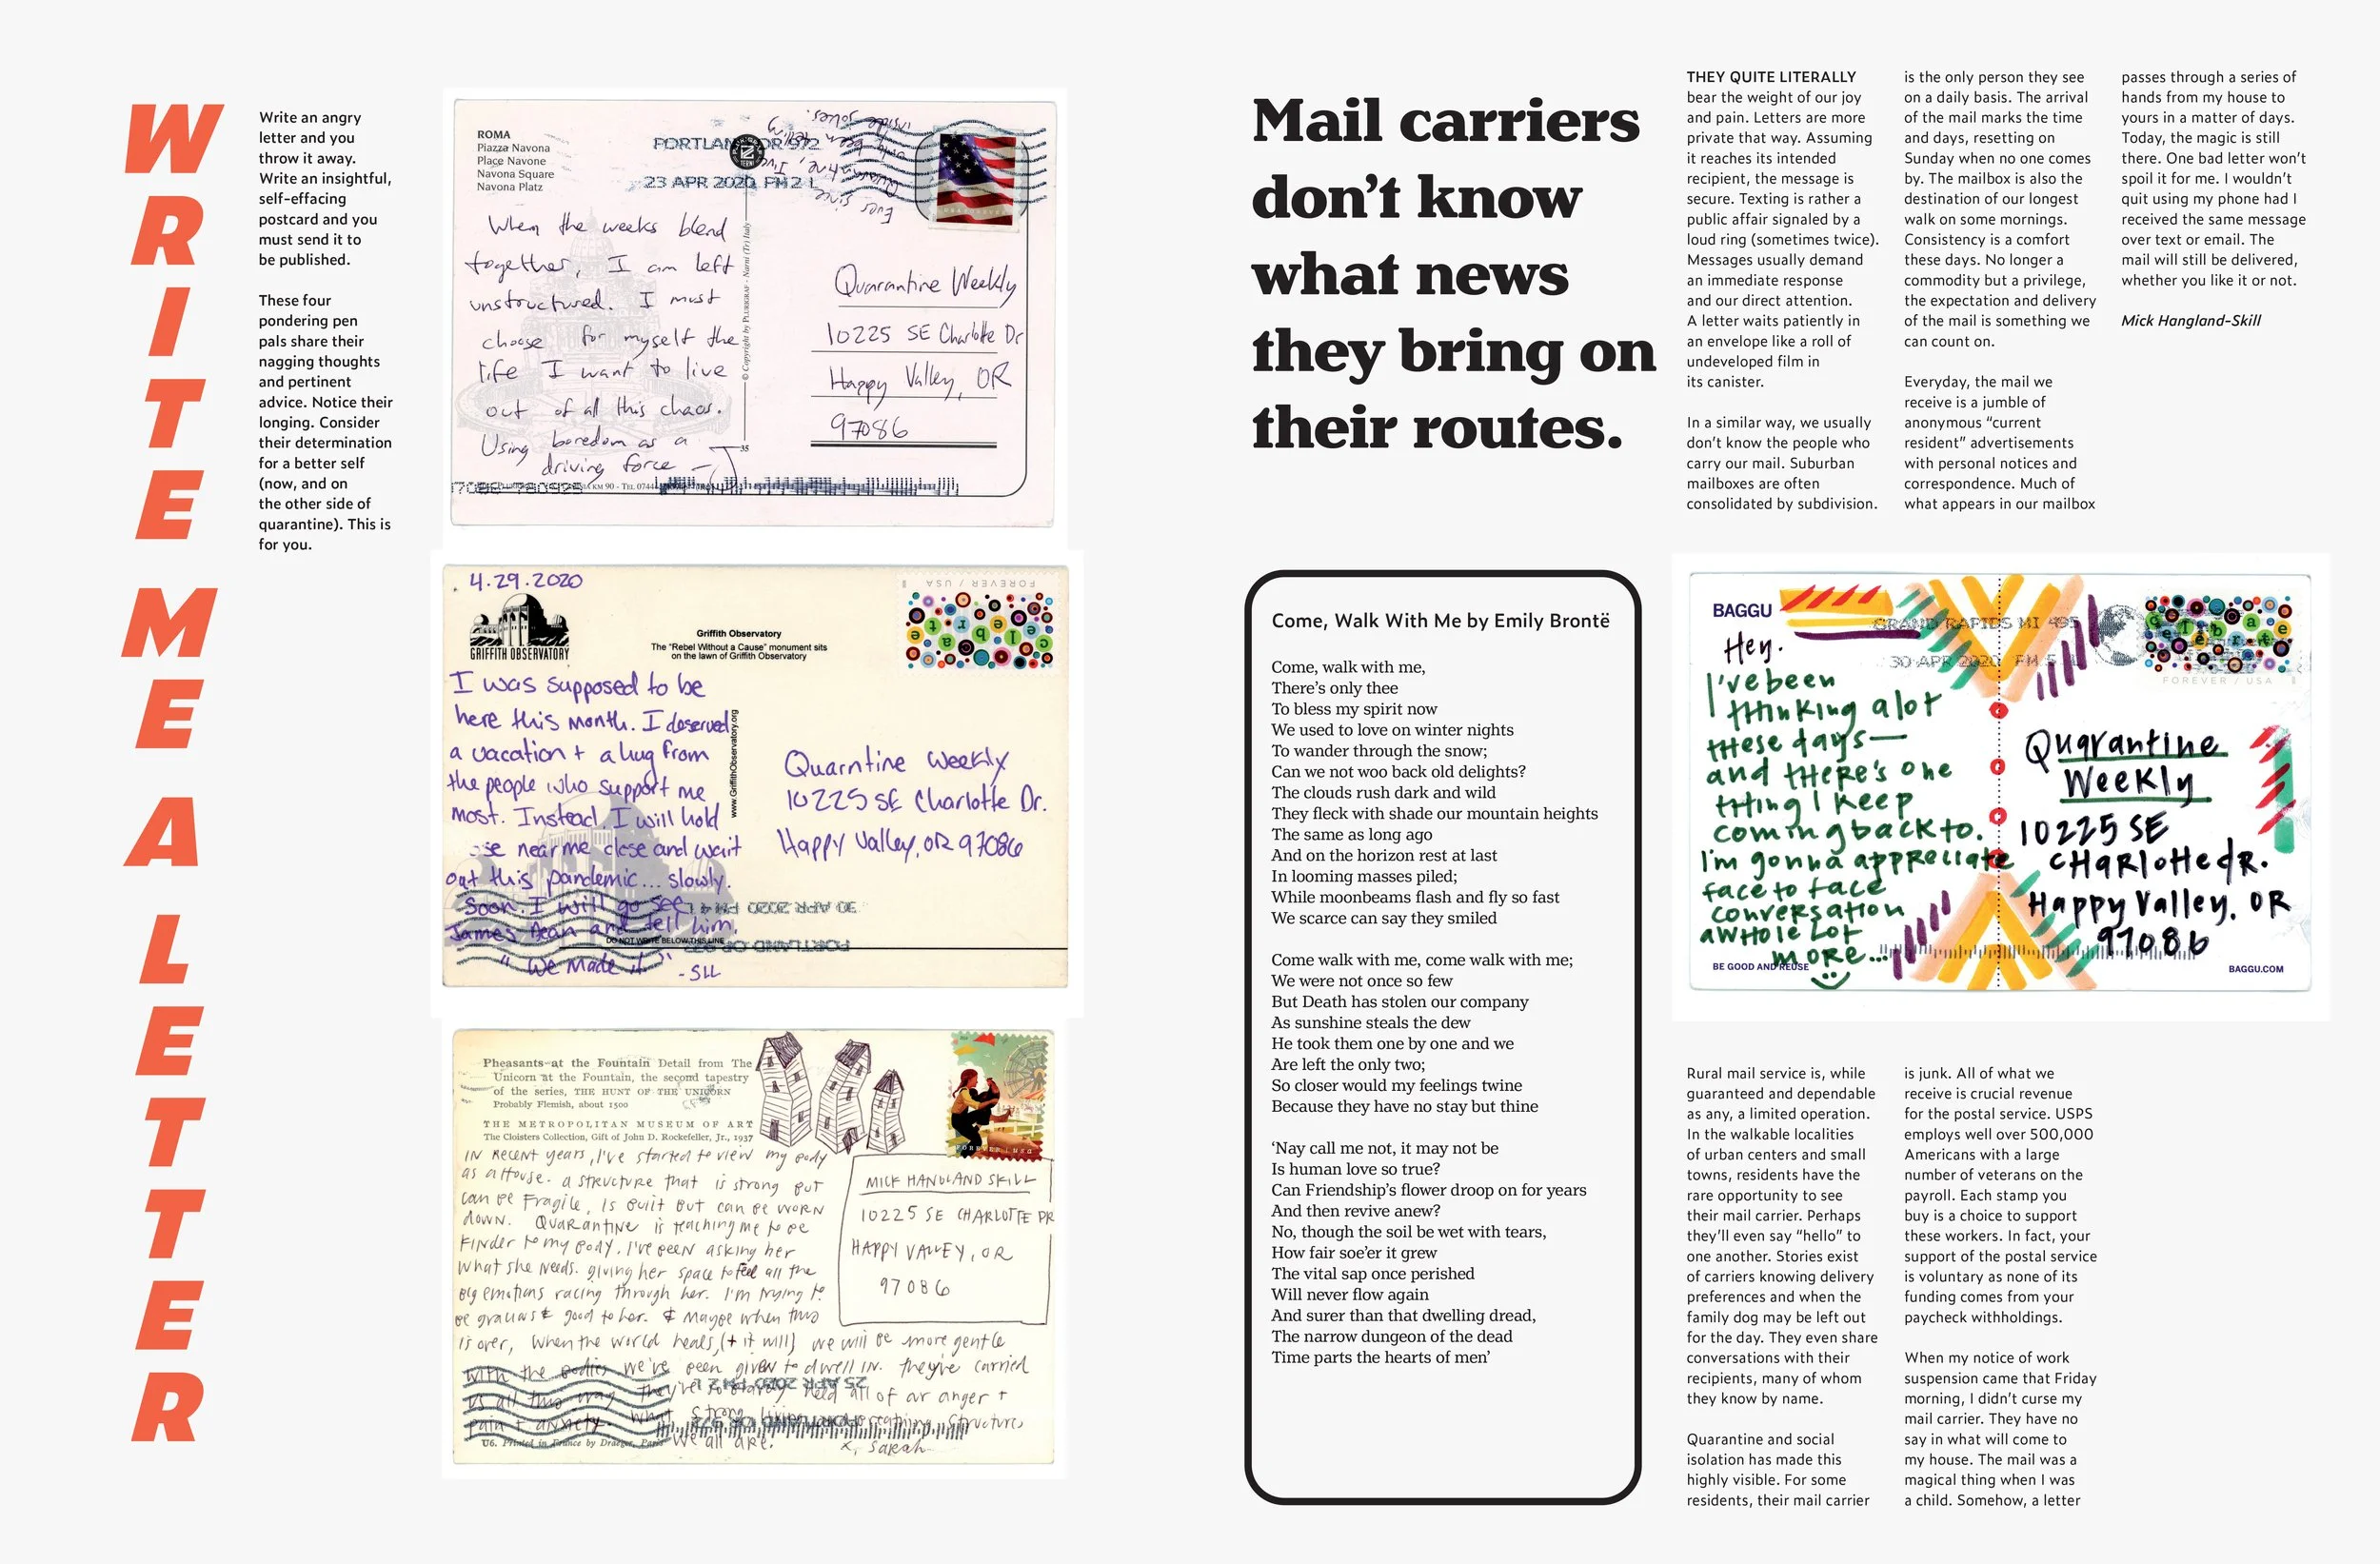 WRITE ME A LETTER
Write an angry
letter and you
throw it away.
Write an insightful,
self-effacing
postcard and you
must send it to
be published.
These four
pondering pen
pals share their
nagging thoughts
and pertinent
advice. Notice their
longing. Consider
their determination
for a better self
(now, and on
the other side of
quarantine). This is
for you.
ROMA
Piazza Navona
Place Navone
Navona Square
Navona Platz
PORTLAND OR 972
23 APR 2020 PM 2 L
When the weeks blend
together, I am left
unstructured. I must
choose for myself the
life I want to live
out of all this chaos.
Using boredom as a
driving force —
Ever since
Quarantine, I've
been telling
inside jokes.
© Copyright by PLURIGRAF - Narni (Tr) Italy
35
Quarantine Weekly
10225 SE Charlotte Dr
Happy Valley, OR
97086
4.29.2020
GRIFFITH OBSERVATORY
Griffith Observatory
The "Rebel Without a Cause" monument sits
on the lawn of Griffith Observatory
FOREVER / USA
celebrate
I was supposed to be
here this month. I deserved
a vacation + a hug from
the people who support me
most. Instead, I will hold
near me close and wait
out this pandemic... slowly.
Soon. I will go see
James Dean and tell him,
"We made it" -SLL
www.GriffithObservatory.org
Quarntine Weekly
10225 SE Charlotte Dr.
Happy Valley, OR 97086
30 APR 2020 PM 4 L
PORTLAND OR 972
DO NOT WRITE BELOW THIS LINE
Pheasants-at the Fountain Detail from The
Unicorn at the Fountain, the second tapestry
of the series, THE HUNT OF THE UNICORN
Probably Flemish, about 1500
THE METROPOLITAN MUSEUM OF ART
The Cloisters Collection, Gift of John D. Rockefeller, Jr., 1937
FOREVER / USA
IN RECENT years, I've started to view my body
as a House. a structure that is strong but
can be Fragile, is built but can be worn
down. Quarantine is teaching me to be
Kinder to my body. I've been asking her
what she needs. giving her space to feel all the
big emotions racing through her. I'm trying to
be gracious & good to her. & maybe when this
is over, when the world heals, (+ it will) we will be more gentle
with the bodies we've been given to dwell in. they've carried
us all this way. they've held all of our anger +
pain + anxiety. What strong living and breathing structures
we all are. x, Sarah
MICK HANGLAND SKILL
10225 SE CHARLOTTE DR
HAPPY VALLEY, OR
97086
25 APR 2020 PM 2 L
PORTLAND OR 972
U6. Printed in France by Draeger, Paris
Mail carriers
don't know
what news
they bring on
their routes.
Come, Walk With Me by Emily Brontë
Come, walk with me,
There's only thee
To bless my spirit now
We used to love on winter nights
To wander through the snow;
Can we not woo back old delights?
The clouds rush dark and wild
They fleck with shade our mountain heights
The same as long ago
And on the horizon rest at last
In looming masses piled;
While moonbeams flash and fly so fast
We scarce can say they smiled
Come walk with me, come walk with me;
We were not once so few
But Death has stolen our company
As sunshine steals the dew
He took them one by one and we
Are left the only two;
So closer would my feelings twine
Because they have no stay but thine
‘Nay call me not, it may not be
Is human love so true?
Can Friendship's flower droop on for years
And then revive anew?
No, though the soil be wet with tears,
How fair soe'er it grew
The vital sap once perished
Will never flow again
And surer than that dwelling dread,
The narrow dungeon of the dead
Time parts the hearts of men’
THEY QUITE LITERALLY
bear the weight of our joy
and pain. Letters are more
private that way. Assuming
it reaches its intended
recipient, the message is
secure. Texting is rather a
public affair signaled by a
loud ring (sometimes twice).
Messages usually demand
an immediate response
and our direct attention.
A letter waits patiently in
an envelope like a roll of
undeveloped film in
its canister.
In a similar way, we usually
don't know the people who
carry our mail. Suburban
mailboxes are often
consolidated by subdivision.
Rural mail service is, while
guaranteed and dependable
as any, a limited operation.
In the walkable localities
of urban centers and small
towns, residents have the
rare opportunity to see
their mail carrier. Perhaps
they'll even say “hello” to
one another. Stories exist
of carriers knowing delivery
preferences and when the
family dog may be left out
for the day. They even share
conversations with their
recipients, many of whom
they know by name.
Quarantine and social
isolation has made this
highly visible. For some
residents, their mail carrier
is the only person they see
on a daily basis. The arrival
of the mail marks the time
and days, resetting on
Sunday when no one comes
by. The mailbox is also the
destination of our longest
walk on some mornings.
Consistency is a comfort
these days. No longer a
commodity but a privilege,
the expectation and delivery
of the mail is something we
can count on.
Everyday, the mail we
receive is a jumble of
anonymous “current
resident” advertisements
with personal notices and
correspondence. Much of
what appears in our mailbox
is junk. All of what we
receive is crucial revenue
for the postal service. USPS
employs well over 500,000
Americans with a large
number of veterans on the
payroll. Each stamp you
buy is a choice to support
these workers. In fact, your
support of the postal service
is voluntary as none of its
funding comes from your
paycheck withholdings.
When my notice of work
suspension came that Friday
morning, I didn't curse my
mail carrier. They have no
say in what will come to
my house. The mail was a
magical thing when I was
a child. Somehow, a letter
passes through a series of
hands from my house to
yours in a matter of days.
Today, the magic is still
there. One bad letter won't
spoil it for me. I wouldn't
quit using my phone had I
received the same message
over text or email. The
mail will still be delivered,
whether you like it or not.
Mick Hangland-Skill
BAGGU
GRAND RAPIDS MI 495
30 APR 2020 PM 5 L
celebrate
FOREVER / USA
Hey.
I've been
thinking a lot
these days—
and there's one
thing I keep
coming back to.
I'm gonna appreciate
face to face
conversation
a whole lot
more...
Quarantine
Weekly
10225 SE
Charlotte dr.
Happy Valley, OR
97086
BE GOOD AND REUSE
BAGGU.COM